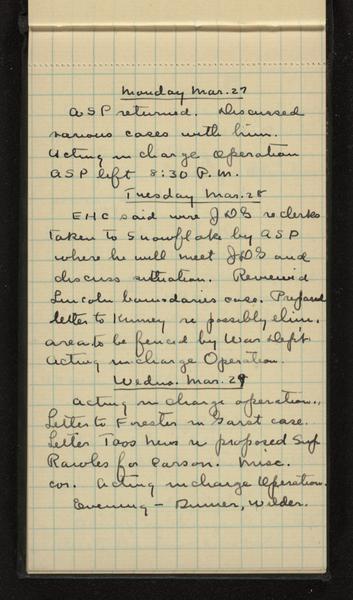 Monday Mar. 27
ASP returned. Discussed
various cases with him.
Acting in charge Operation
ASP left 8:30 P.M.
Tuesday Mar. 28
EHC said wire JDG re clerks
taken to Snowflake by ASP
where he will meet JDG and
discuss situation. Reviewed
Lincoln boundaries case. Prepared
letter to Kinney re possibly elim.
area to be fenced by War Dept.
Acting in charge Operation.
Wednes. Mar. 29
Acting in charge operation.
Letter to Forester in Garst case.
Letter Taos News re proposed Sup
for Carson. Misc.
cor. Acting in charge Operation.
Evening - Dinner, Wilder.